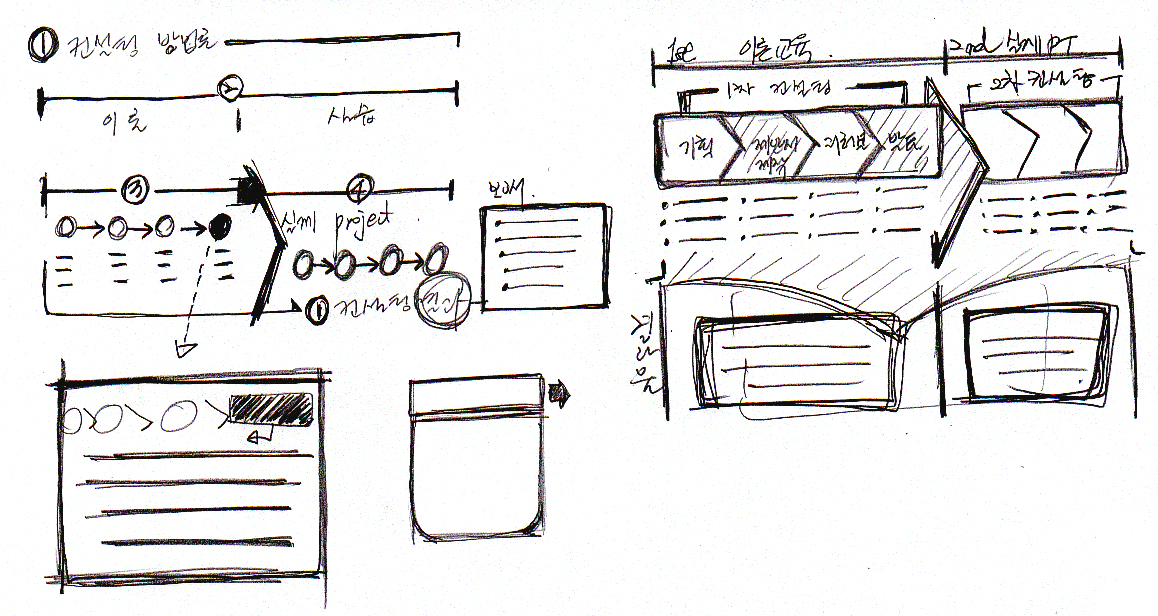 ① 컨설팅 방법론
②
이론
실습
③
④
실제 project
① 컨설팅 결과
보고서
1st 이론교육
2nd 실제 PT
1차 컨설팅
2차 컨설팅
기획
발표